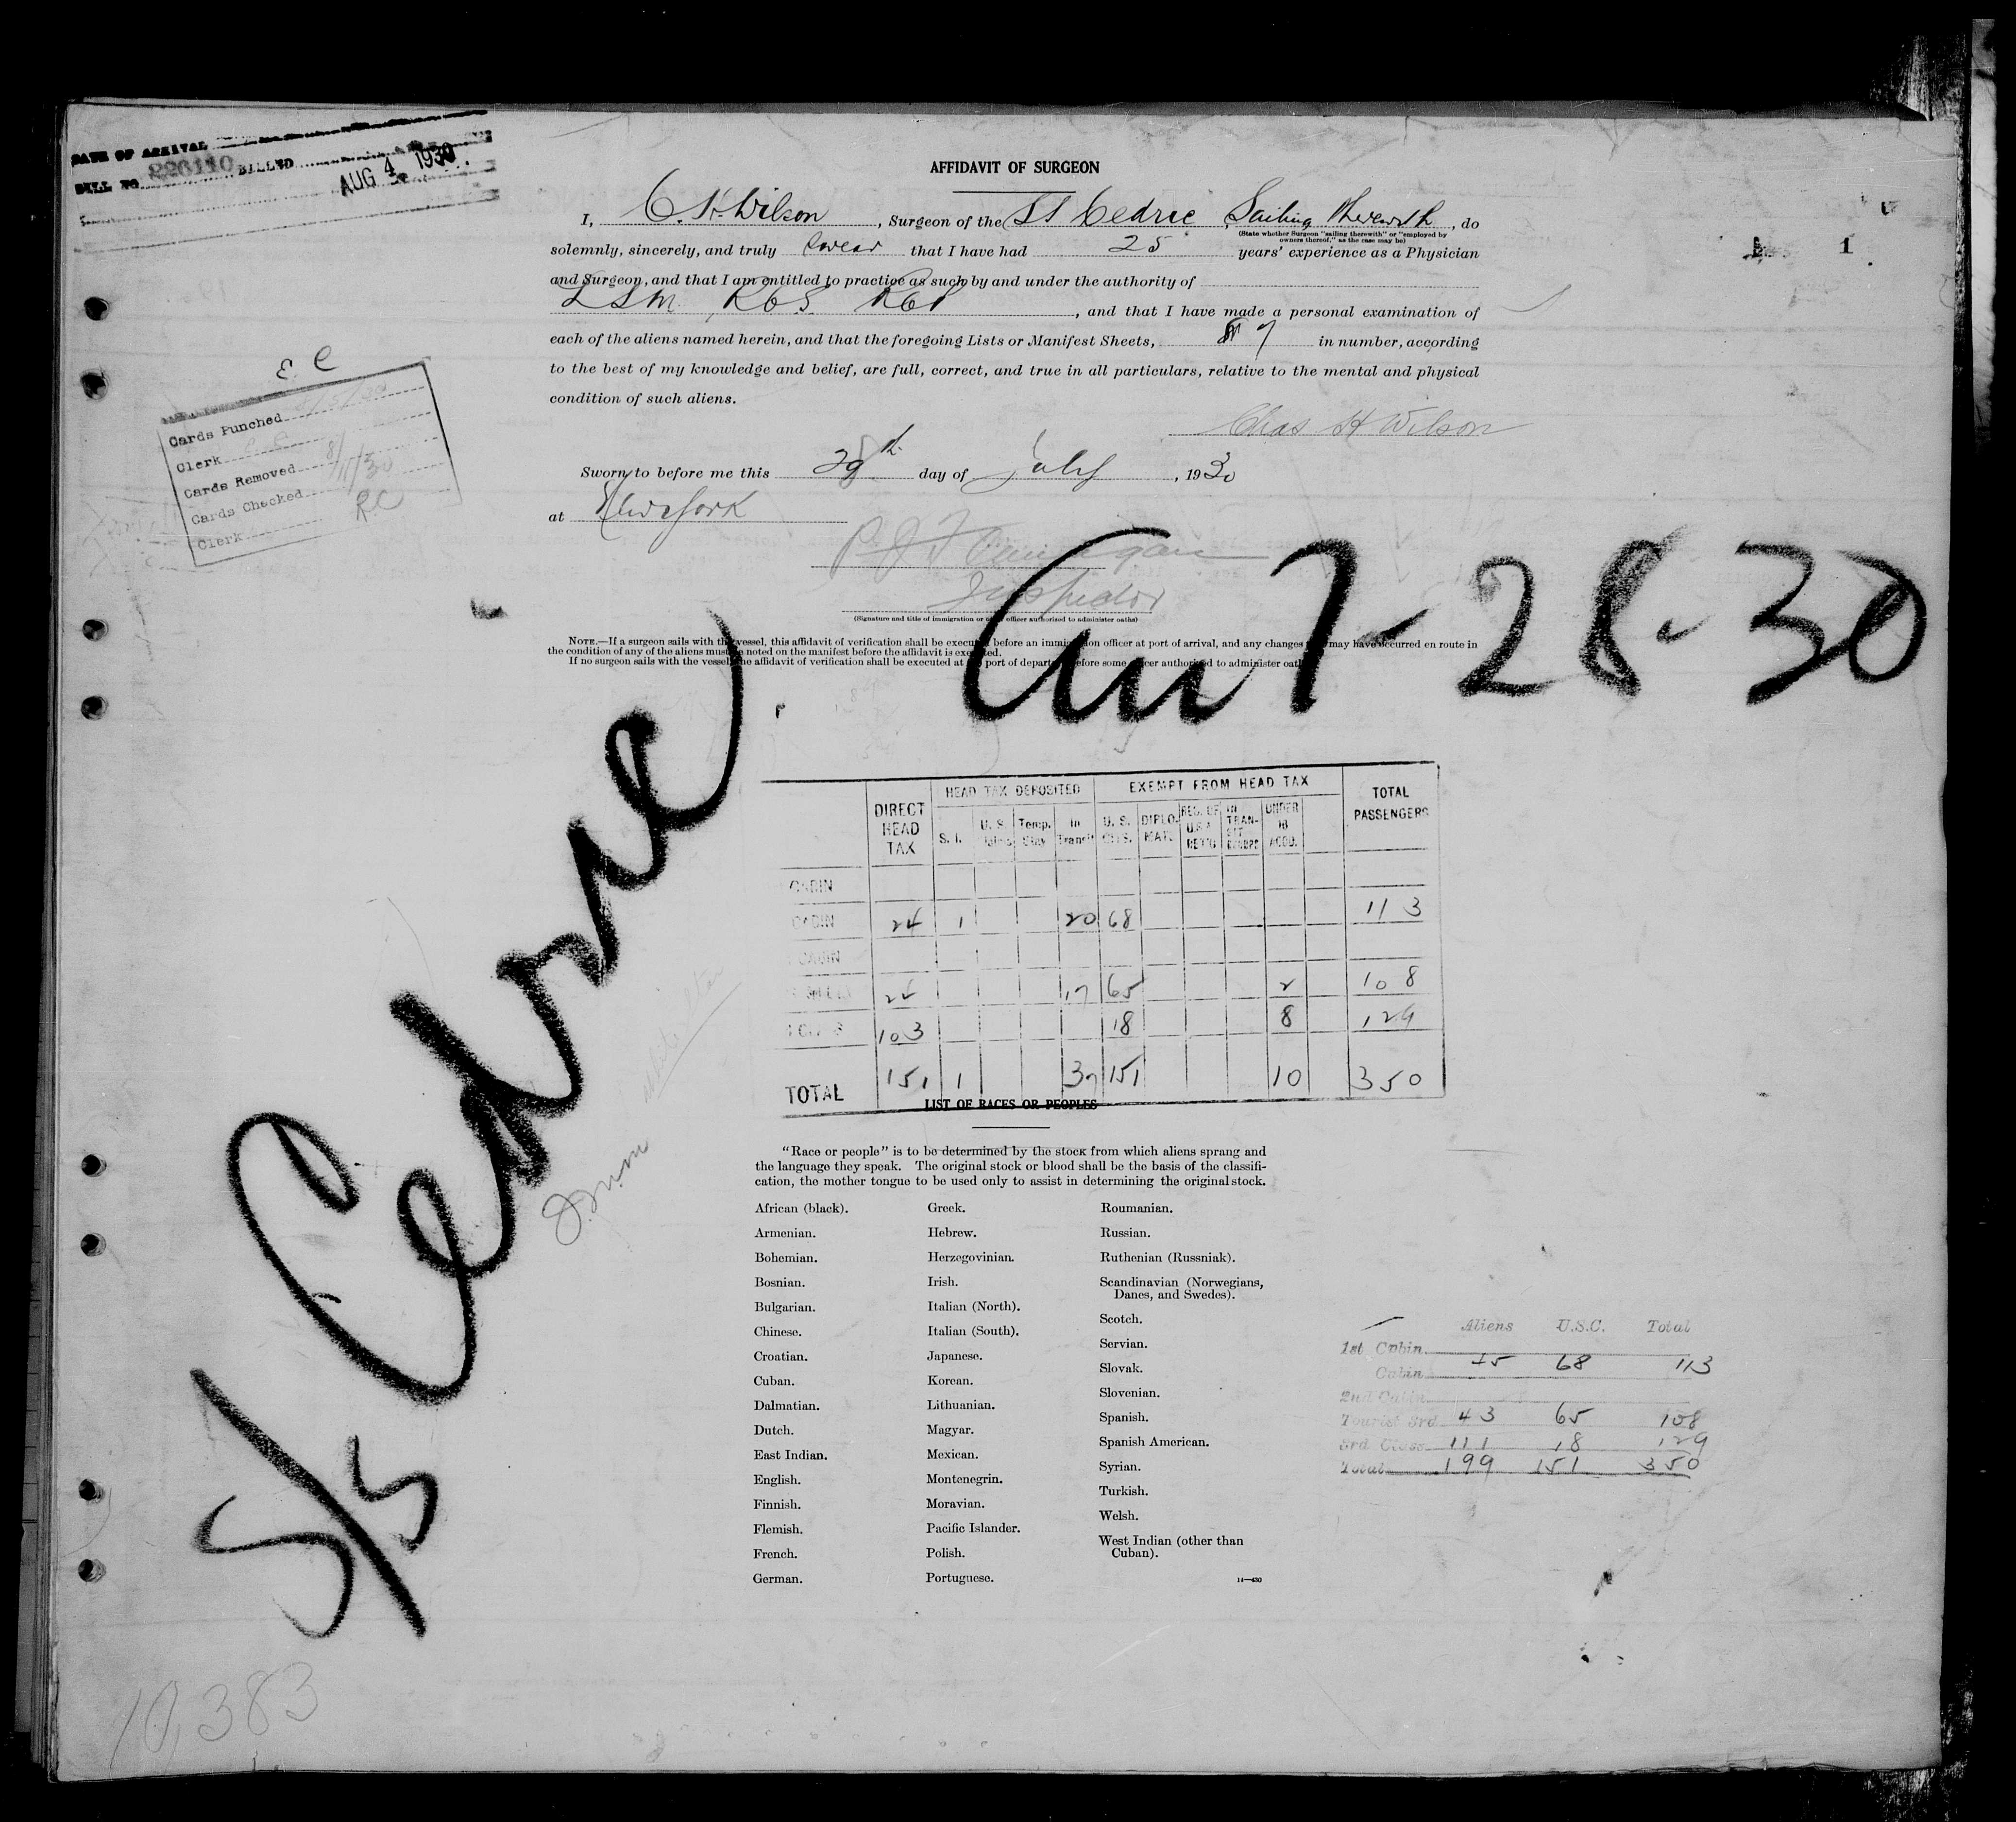 DATE OF ARRIVAL
BILL NO. 226110 BILLED AUG 4 1930
AFFIDAVIT OF SURGEON
I, C. H. Wilson, Surgeon of the SS Cedric, Sailing therewith, do
(State whether Surgeon "sailing therewith" or "employed by
owners thereof," as the case may be)
1
solemnly, sincerely, and truly swear that I have had 25 years' experience as a Physician
and Surgeon, and that I am entitled to practice as such by and under the authority of
, and that I have made a personal examination of
each of the aliens named herein, and that the foregoing Lists or Manifest Sheets, 7 in number, according
to the best of my knowledge and belief, are full, correct, and true in all particulars, relative to the mental and physical
condition of such aliens.
Chas H Wilson
Sworn to before me this 29th day of July, 1930
at New York
Inspector
(Signature and title of immigration or other officer authorized to administer oaths)
NOTE.—If a surgeon sails with the vessel, this affidavit of verification shall be executed before an immigration officer at port of arrival, and any changes may have occurred en route in
the condition of any of the aliens must be noted on the manifest before the affidavit is executed.
If no surgeon sails with the vessel, the affidavit of verification shall be executed at port of departure before some officer authorized to administer oaths
E C
Cards Punched
Clerk
Cards Removed 8/11/30
Cards Checked RC
Clerk
7-28-30
S/S Cedric
DIRECT HEAD TAX
HEAD TAX DEPOSITED
EXEMPT FROM HEAD TAX
TOTAL PASSENGERS
S. I. U. S. Temp. Stay In Transit U. S. CITS. DIPLO- MAT. RES. OF U.S.A. RET'G IN TRAN- SIT UNDER 16 ACCO.
CABIN
CABIN 24 1 20 68 113
CABIN
24 17 65 2 108
103 18 8 129
TOTAL 151 1 37 151 10 350
LIST OF RACES OR PEOPLES
"Race or people" is to be determined by the stock from which aliens sprang and
the language they speak. The original stock or blood shall be the basis of the classifi-
cation, the mother tongue to be used only to assist in determining the original stock.
African (black).
Armenian.
Bohemian.
Bosnian.
Bulgarian.
Chinese.
Croatian.
Cuban.
Dalmatian.
Dutch.
East Indian.
English.
Finnish.
Flemish.
French.
German.
Greek.
Hebrew.
Herzegovinian.
Irish.
Italian (North).
Italian (South).
Japanese.
Korean.
Lithuanian.
Magyar.
Mexican.
Montenegrin.
Moravian.
Pacific Islander.
Polish.
Portuguese.
Roumanian.
Russian.
Ruthenian (Russniak).
Scandinavian (Norwegians,
Danes, and Swedes).
Scotch.
Servian.
Slovak.
Slovenian.
Spanish.
Spanish American.
Syrian.
Turkish.
Welsh.
West Indian (other than
Cuban).
14—430
Aliens U.S.C. Total
1st Cabin
Cabin 45 68 113
2nd Cabin
Tourist 3rd 43 65 108
3rd Class 111 18 129
Total 199 151 350
10,383